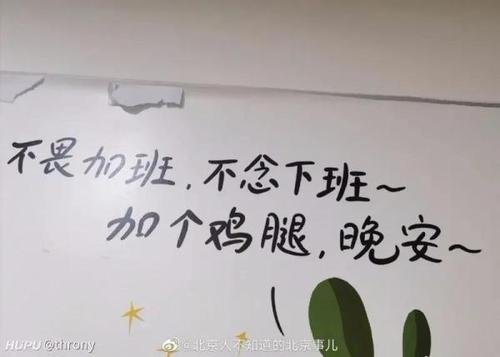 不畏加班,不念下班~
加个鸡腿,晚安~
HUPU @throny
@北京人不知道的北京事儿